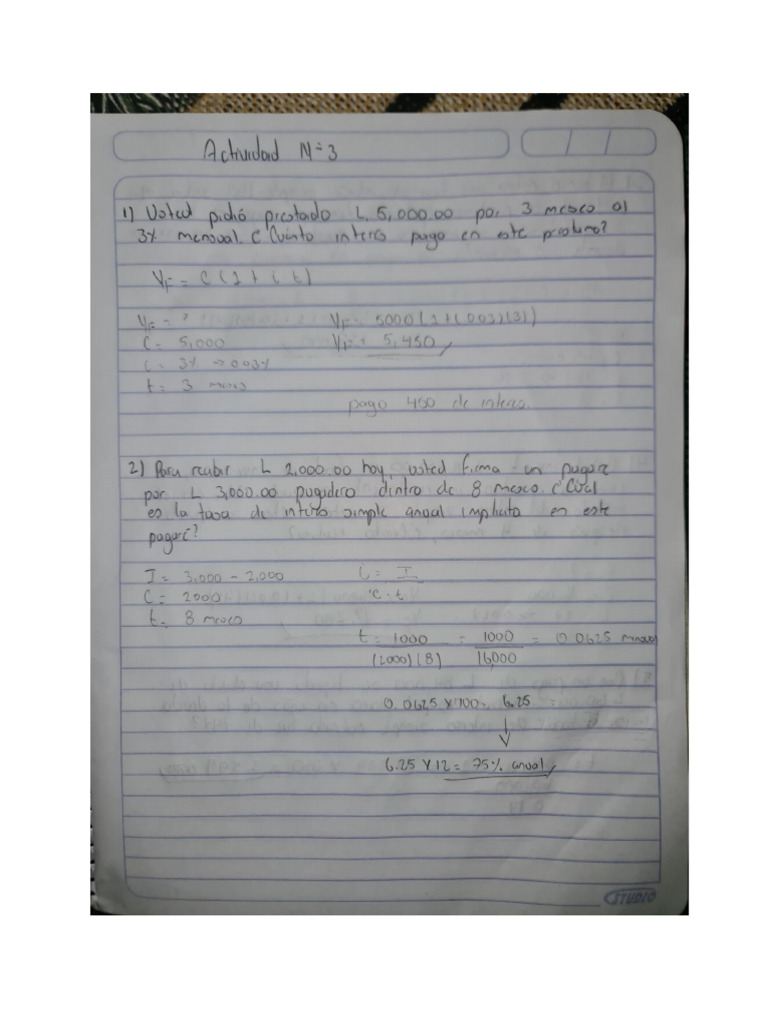 Actividad N=3
1) Usted pidió prestado L. 5,000.00 por 3 meses al
3% mensual. ¿Cuánto interes pago en este prestamo?
VF = C(1 + i t)
VF = ? VF = 5000(1+(003)(3))
C = 5,000 VF = 5,450
i = 3% → 0.03%
t = 3 meses
pago 450 de interes.
2) Para recibir L 2,000.00 hoy, usted firma un pagaré
por L 3,000.00 pagadero dentro de 8 meses. ¿Cuál
es la tasa de interes simple anual implicita en este
pagaré?
I = 3,000 - 2,000 i = I
C = 2000 C · t
t = 8 meses
t = 1000 = 1000 = 0.0625 mensual
(2000)(8) 16,000
0.0625 x 100 = 6.25 =
↓
6.25 x 12 = 75% anual
STUDIO